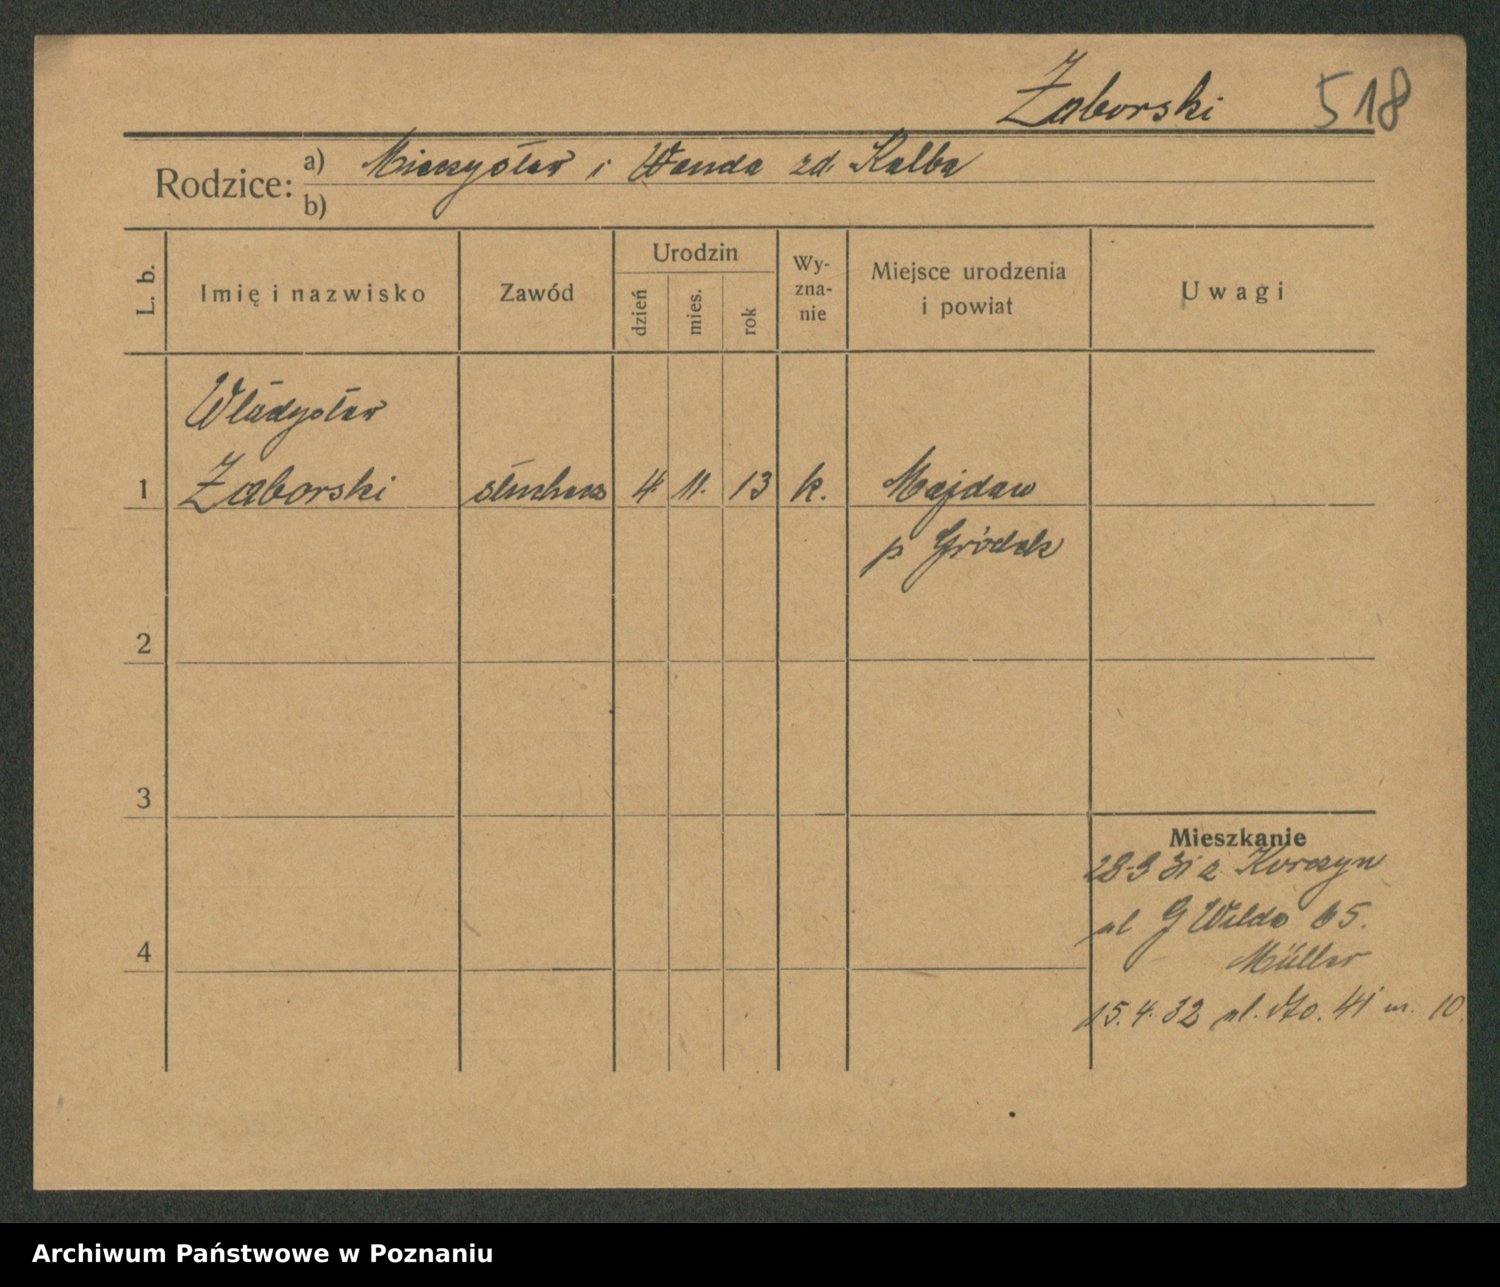 Żaborski 518
Rodzice: a) Mieczysław i Wanda zd. Kalba
b)
L. b. Imię i nazwisko Zawód Urodzin dzień mies. rok Wyznanie Miejsce urodzenia i powiat Uwagi
Władysław
1 Żaborski słuchacz 4. 11. 13 k. Majdan
p Gródek
2
3
Mieszkanie
28.9 31 z Korczyn
4 ul G Wilda 65.
Müller
15. 4. 32 ul. dto. 41 m. 10.
Archiwum Państwowe w Poznaniu